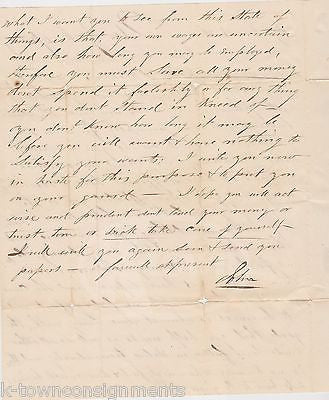 what I want you to see from this State of
things, is that, your own wages are uncertain
and also how long you may be employed,
therefore you must Save all your money
dont Spend it foolishly or for any thing
that you dont Stand in kneed of —
you don't know how long it may be
before you will want & have nothing to
Satisfy your wants, I write you now
in haste for this purpose & to put you
on your guard — I hope you will act
wise and prudent dont lend your money or
trust to be broke take care of yourself
I will write you again soon & send you
papers — farewell at present
John
k-townconsignments